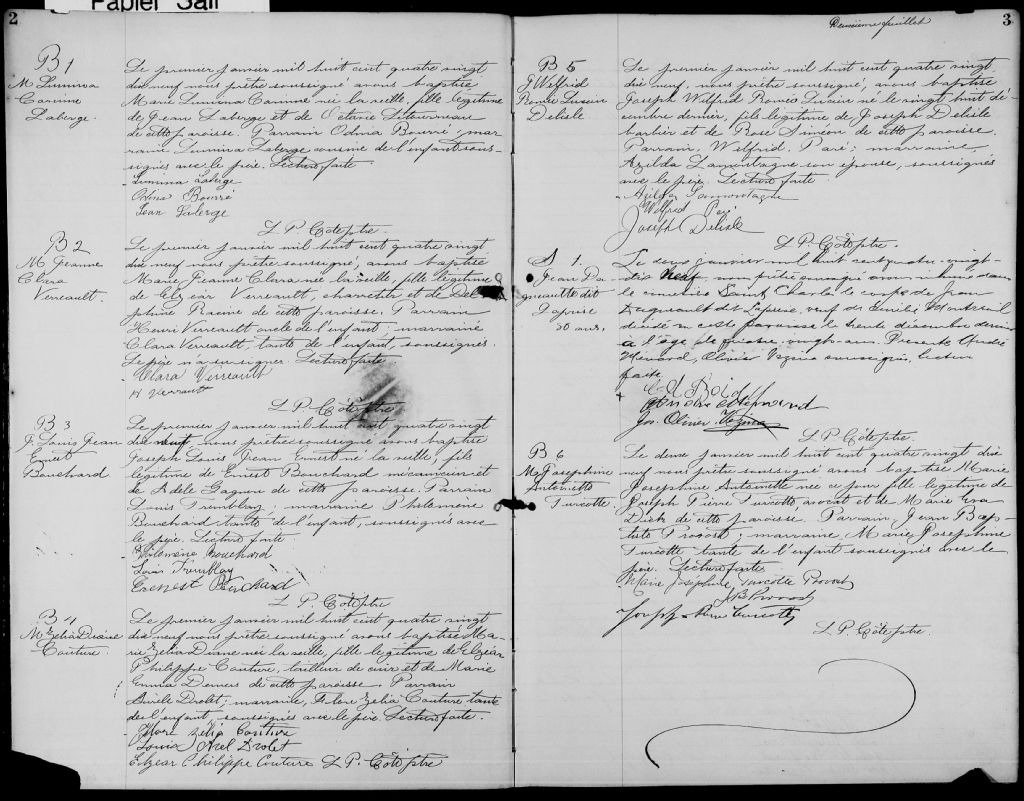 Papier Sali
2
B 1
M Lumina
Corinne
Laberge.
Le premier janvier mil huit cent quatre vingt
dix neuf nous prêtre soussigné avons baptisé
Marie Lumina Corinne née la veille, fille légitime
de Jean Laberge et de Octavie Létourneau
de cette paroisse. Parrain Odina Bourré; mar-
raine Lumina Laberge cousine de l'enfant sous-
signés avec le père. Lecture faite
Lumina Laberge
Odina Bourré
Jean Laberge
L P. Côté ptre
B 2
M Jeanne
Clara
Verreault.
Le premier janvier mil huit cent quatre vingt
dix neuf nous prêtre soussigné, avons baptisé
Marie Jeanne Clara née la veille, fille légitime
de Elzéar Verreault, charretier et de Del-
phine Racine de cette paroisse. Parrain
Henri Verreault oncle de l'enfant; marraine
Clara Verreault, tante de l'enfant, soussignés.
Le père n'a su signer. Lecture faite
Clara Verreault
H Verrault
L P. Côté ptre
B 3
J. Louis Jean
Ernest
Bouchard
Le premier janvier mil huit cent quatre vingt
dix neuf, nous prêtre soussigné avons baptisé
Joseph Louis Jean Ernest né la veille, fils
légitime de Ernest Bouchard mécanicien et
de Adèle Gagnon de cette paroisse. Parrain
Louis Tremblay, marraine Philomène
Bouchard tante de l'enfant, soussignés avec
le père. Lecture faite
Philomène Bouchard
Louis Tremblay
Ernest Bouchard
L P. Côté ptre
B 4
M Zélia Diane
Couture.
Le premier janvier mil huit cent quatre vingt
dix neuf nous prêtre soussigné avons baptisé Ma-
rie Zélia Diane née la veille, fille légitime de Elzéar
Philippe Couture, tailleur de cuir et de Marie
Emma Demers de cette paroisse. Parrain
Aurèle Drolet; marraine, Flore Zélia Couture tante
de l'enfant, soussignés avec le père. Lecture faite.
Flore Zélia Couture
Louis Drolet
Elzéar Philippe Couture L P. Côté ptre
Deuxième feuillet
3
B 5
J Wilfrid
Roméo Lucien
Delisle
Le premier janvier mil huit cent quatre vingt
dix neuf, nous prêtre soussigné, avons baptisé
Joseph Wilfrid Roméo Lucien né le vingt huit dé-
cembre dernier, fils légitime de Joseph Delisle
barbier et de Rose Simeon de cette paroisse.
Parrain, Wilfrid Paré; marraine,
Azilda Lamontagne son épouse, soussignés
avec le père. Lecture faite
Azilda Lamontagne
Wilfrid Paré
Joseph Delisle
L P. Côté ptre.
S 1.
Jean Da-
gneault dit
Laprise
80 ans.
Le deux janvier mil huit cent quatre-vingt-
dix neuf nous prêtre soussigné avons inhumé dans
le cimetière Saint Charles le corps de Jean
Dagneault dit Laprise, veuf de Montreuil
décédé en cette paroisse le trente décembre dernier
à l'âge de quatre-vingts ans. Présents André
Ménard, Olivier Vézina soussignés, lecture
faite
André Ménard
Jos. Olivier Vézina
L P. Côté ptre.
B 6
M Josephine
Antoinette
Turcotte
Le deux janvier mil huit cent quatre vingt dix
neuf nous prêtre soussigné avons baptisé Marie
Josephine Antoinette née ce jour fille légitime de
Joseph Pierre Turcotte, avocat et de Marie Eva
Dick de cette paroisse. Parrain, Jean Bap-
tiste Provost; marraine, Marie Josephine
Turcotte tante de l'enfant soussignés avec le
père. Lecture faite
Marie Josephine Turcotte Provost
J B Provost
Joseph Pierre Turcotte
L P. Côté ptre.